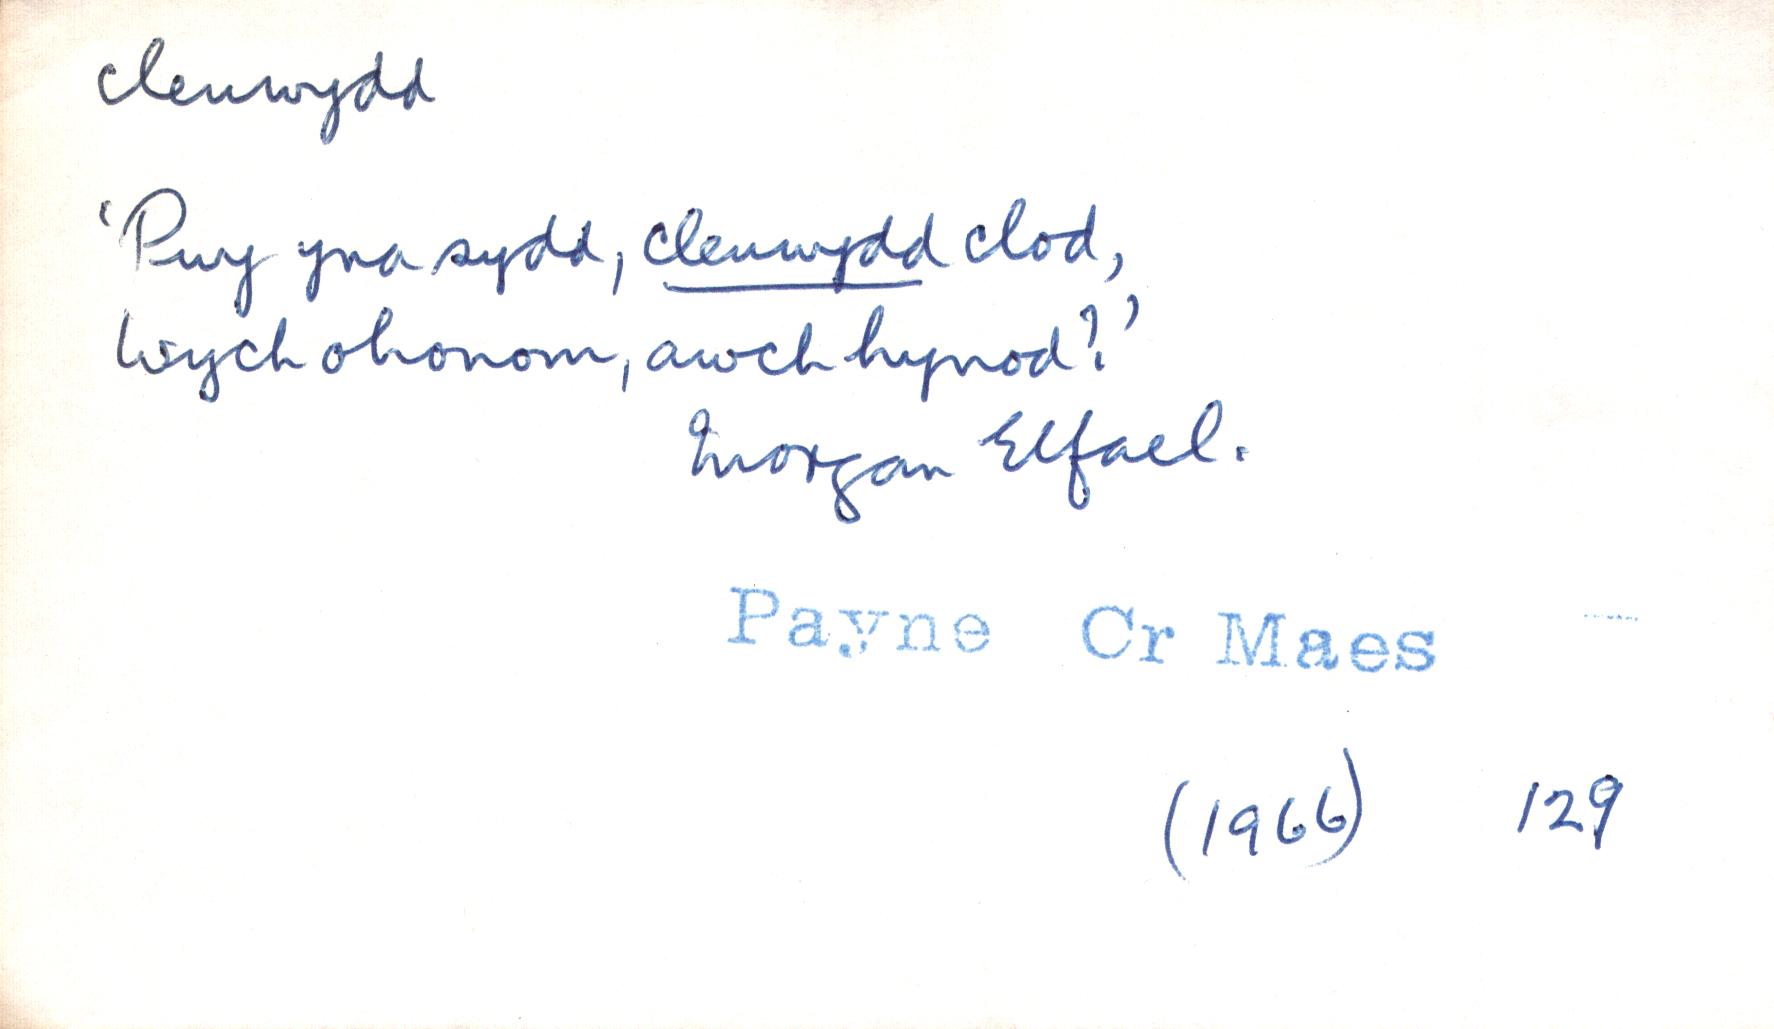 clenwydd
'Pwy yna sydd, clenwydd clod,
Wych ohonom, awch hynod?'
Morgan Elfael.
Payne Cr Maes
(1966) 129